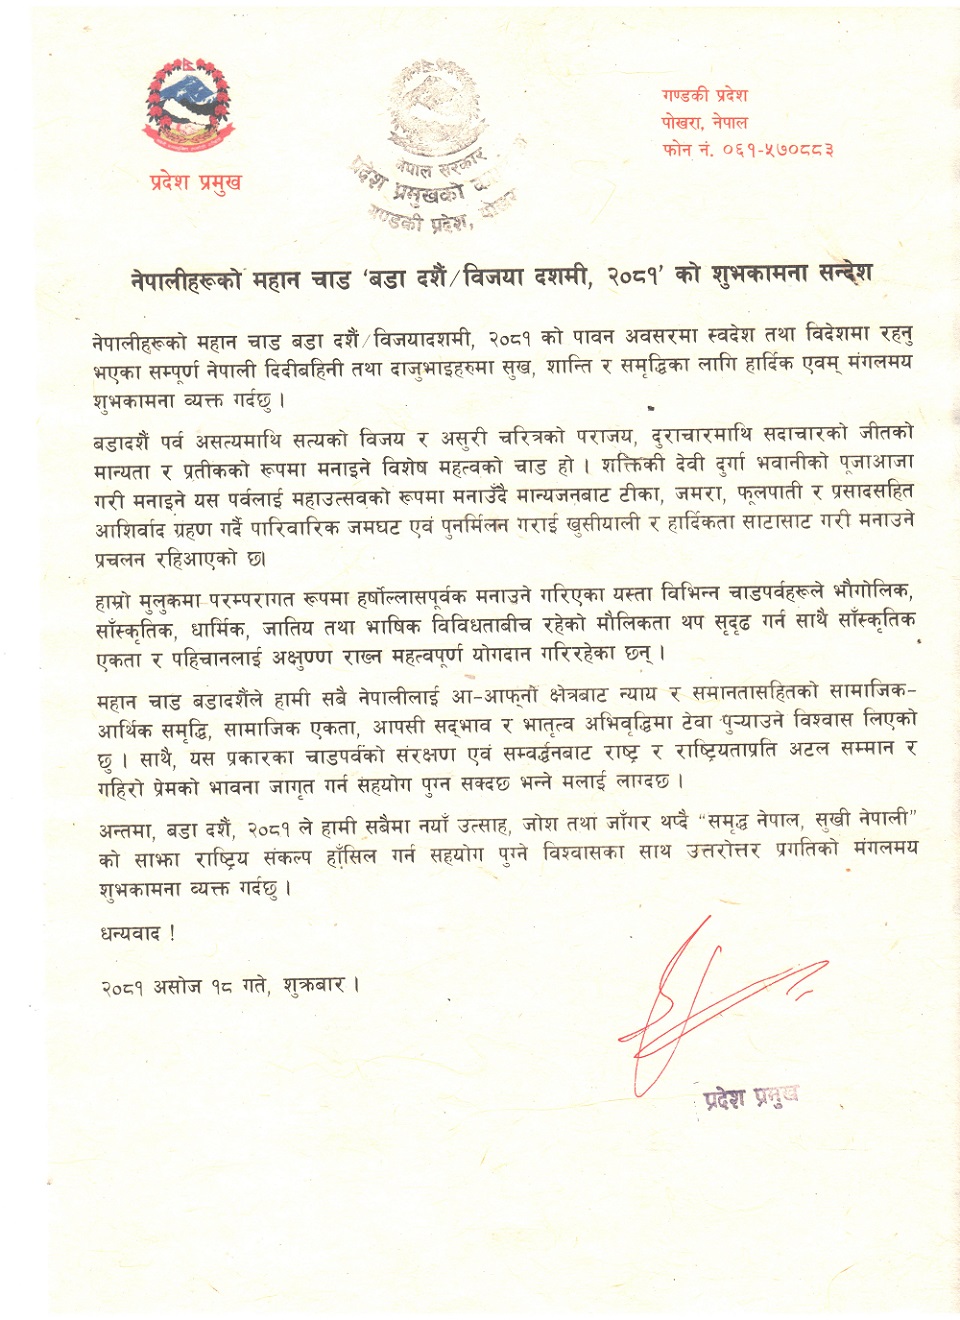 प्रदेश प्रमुख
नेपाल सरकार
प्रदेश प्रमुखको
गण्डकी प्रदेश,
गण्डकी प्रदेश
पोखरा, नेपाल
फोन नं. ०६१-५७०८८३
नेपालीहरूको महान चाड 'बडा दशैं/विजया दशमी, २०८१' को शुभकामना सन्देश
नेपालीहरूको महान चाड बडा दशैं/विजयादशमी, २०८१ को पावन अवसरमा स्वदेश तथा विदेशमा रहनु
भएका सम्पूर्ण नेपाली दिदीबहिनी तथा दाजुभाइहरुमा सुख, शान्ति र समृद्धिका लागि हार्दिक एवम् मंगलमय
शुभकामना व्यक्त गर्दछु ।
बडादशैं पर्व असत्यमाथि सत्यको विजय र असुरी चरित्रको पराजय, दुराचारमाथि सदाचारको जीतको
मान्यता र प्रतीकको रूपमा मनाइने विशेष महत्वको चाड हो । शक्तिकी देवी दुर्गा भवानीको पूजाआजा
गरी मनाइने यस पर्वलाई महाउत्सवको रूपमा मनाउँदै मान्यजनबाट टीका, जमरा, फूलपाती र प्रसादसहित
आशिर्वाद ग्रहण गर्दै पारिवारिक जमघट एवं पुनर्मिलन गराई खुसीयाली र हार्दिकता साटासाट गरी मनाउने
प्रचलन रहिआएको छ।
हाम्रो मुलुकमा परम्परागत रूपमा हर्षोल्लासपूर्वक मनाउने गरिएका यस्ता विभिन्न चाडपर्वहरूले भौगोलिक,
साँस्कृतिक, धार्मिक, जातिय तथा भाषिक विविधताबीच रहेको मौलिकता थप सृदृढ गर्न साथै साँस्कृतिक
एकता र पहिचानलाई अक्षुण्ण राख्न महत्वपूर्ण योगदान गरिरहेका छन् ।
महान चाड बडादशैंले हामी सबै नेपालीलाई आ-आफ्नो क्षेत्रबाट न्याय र समानतासहितको सामाजिक-
आर्थिक समृद्धि, सामाजिक एकता, आपसी सद्भाव र भातृत्व अभिवृद्धिमा टेवा पुऱ्याउने विश्वास लिएको
छु । साथै, यस प्रकारका चाडपर्वको संरक्षण एवं सम्बर्द्धनबाट राष्ट्र र राष्ट्रियताप्रति अटल सम्मान र
गहिरो प्रेमको भावना जागृत गर्न सहयोग पुग्न सक्दछ भन्ने मलाई लाग्दछ ।
अन्तमा, बडा दशैं, २०८१ ले हामी सबैमा नयाँ उत्साह, जोश तथा जाँगर थप्दै "समृद्ध नेपाल, सुखी नेपाली"
को साझा राष्ट्रिय संकल्प हाँसिल गर्न सहयोग पुग्ने विश्वासका साथ उत्तरोत्तर प्रगतिको मंगलमय
शुभकामना व्यक्त गर्दछु ।
धन्यवाद !
२०८१ असोज १८ गते, शुक्रबार ।
प्रदेश प्रमुख